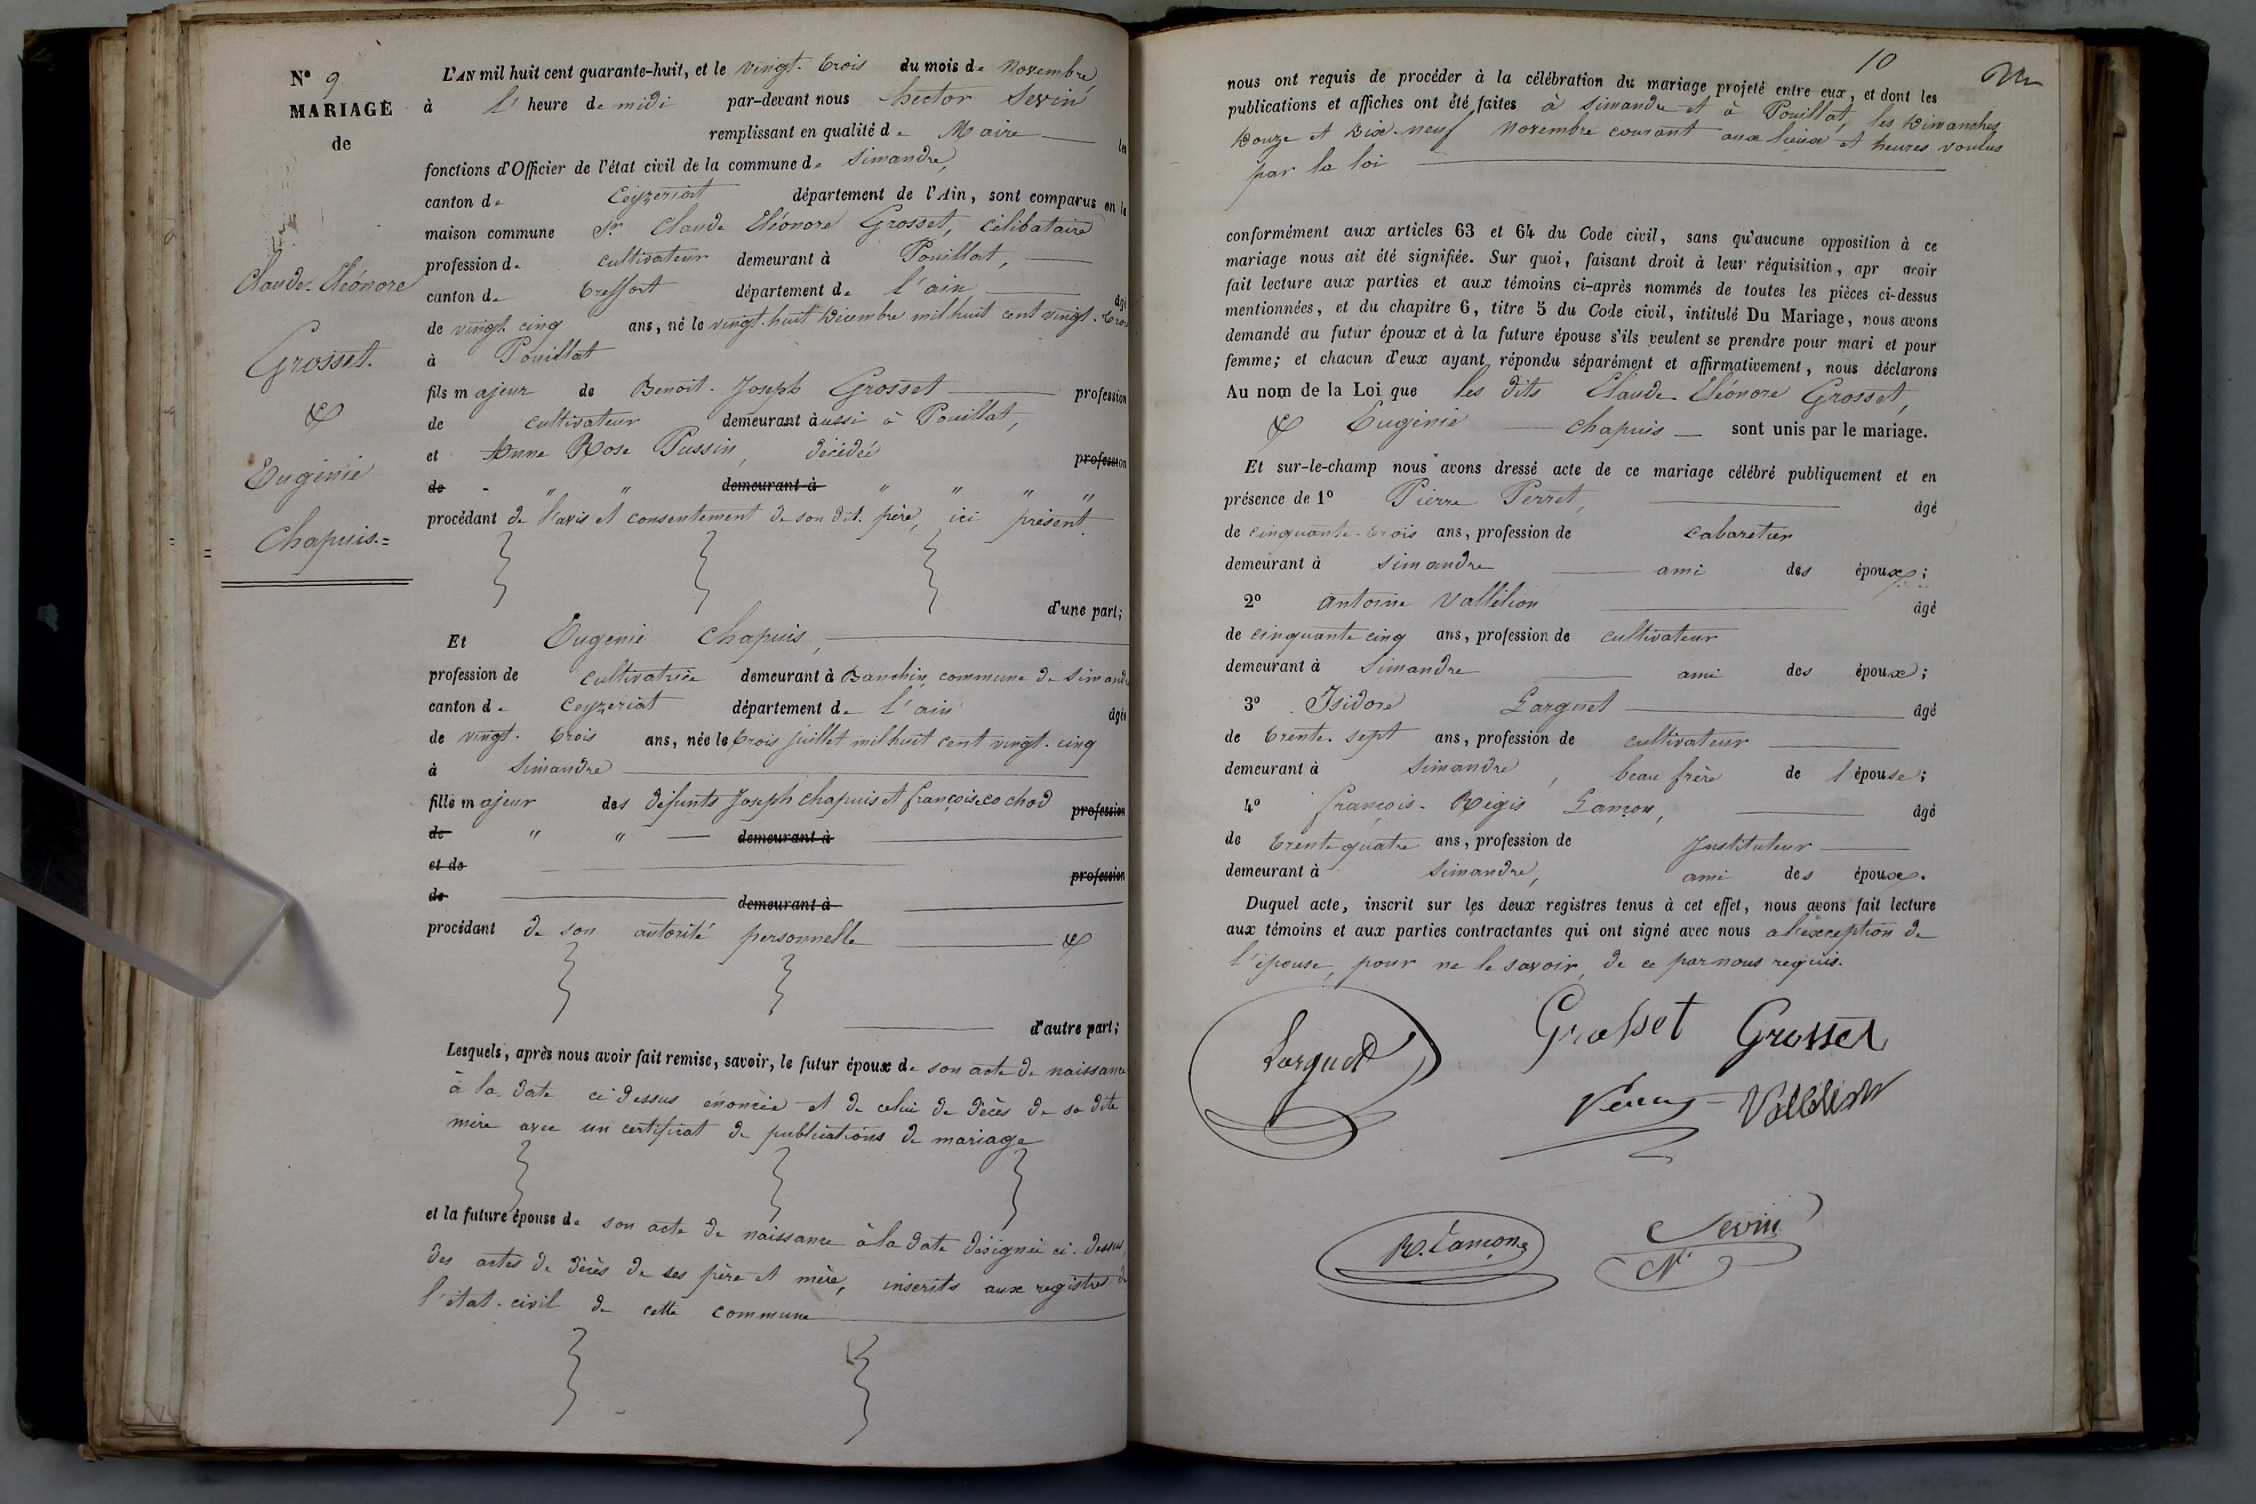 N° 9
MARIAGE
de
Claude-Eléonore
Grosset.
&
Eugénie
Chapuis.=
L'AN mil huit cent quarante-huit, et le vingt-trois du mois de Novembre,
à l'heure de midi par-devant nous hector Sevin
remplissant en qualité de Maire les
fonctions d'Officier de l'état civil de la commune de Simandre,
canton de Ceyzeriat département de l'Ain, sont comparus en la
maison commune Sr. Claude Eléonore Grosset, célibataire
profession de cultivateur demeurant à Pouillat,
canton de treffort département de l'ain âgé
de vingt-cinq ans, né le vingt-huit Décembre mil huit cent vingt-trois
à Pouillat
fils majeur de Benoit-Joseph Grosset profession
de cultivateur demeurant aussi à Pouillat,
et Anne Rose Pussin, décédée profession
de - " " demeurant à " " " "
procédant de l'avis et consentement de son dit père, ici présent.
d'une part;
Et Eugenie Chapuis,
profession de cultivatrice demeurant à Banchin, commune de Simandre
canton de Ceyzeriat département de l'ain âgée
de vingt-trois ans, née le trois juillet mil huit cent vingt-cinq
à Simandre
fille majeur des défunts Joseph chapuis et françoise cochod profession
de " " demeurant à
et de profession
de demeurant à
procédant de son autorité personnelle &
d'autre part;
Lesquels, après nous avoir fait remise, savoir, le futur époux de son acte de naissance
à la date ci dessus énoncée et de celui de décès de sa dite
mère avec un certificat de publications de mariage
et la future épouse de son acte de naissance à la date désignée ci-dessus,
des actes de décès de ses père et mère, inscrits aux registres de
l'état-civil de cette commune
10
nous ont requis de procéder à la célébration du mariage projeté entre eux, et dont les
publications et affiches ont été faites à Simandre et à Pouillat, les Dimanches
Douze et Dix-neuf Novembre courant aux lieux et heures voulus
par la loi
conformément aux articles 63 et 64 du Code civil, sans qu'aucune opposition à ce
mariage nous ait été signifiée. Sur quoi, faisant droit à leur réquisition, apr avoir
fait lecture aux parties et aux témoins ci-après nommés de toutes les pièces ci-dessus
mentionnées, et du chapitre 6, titre 5 du Code civil, intitulé Du Mariage, nous avons
demandé au futur époux et à la future épouse s'ils veulent se prendre pour mari et pour
femme; et chacun d'eux ayant répondu séparément et affirmativement, nous déclarons
Au nom de la Loi que les dits Claude Eléonore Grosset,
& Eugénie chapuis sont unis par le mariage.
Et sur-le-champ nous avons dressé acte de ce mariage célébré publiquement et en
présence de 1° Pierre Perret, âgé
de cinquante-trois ans, profession de cabaretier
demeurant à Simandre ami des époux;
2° Antoine Vallélion âgé
de cinquante cinq ans, profession de cultivateur
demeurant à Simandre ami des époux;
3° Isidore Larguet âgé
de trente-sept ans, profession de cultivateur
demeurant à Simandre, beau frère de l'épouse;
4° françois-Régis Lançon, âgé
de trente quatre ans, profession de Instituteur
demeurant à Simandre, ami des époux.
Duquel acte, inscrit sur les deux registres tenus à cet effet, nous avons fait lecture
aux témoins et aux parties contractantes qui ont signé avec nous à l'exception de
l'épouse, pour ne le savoir, de ce par nous requis.
Larguet Grosset Grosset
Vallélion
R. Lançon Sevin